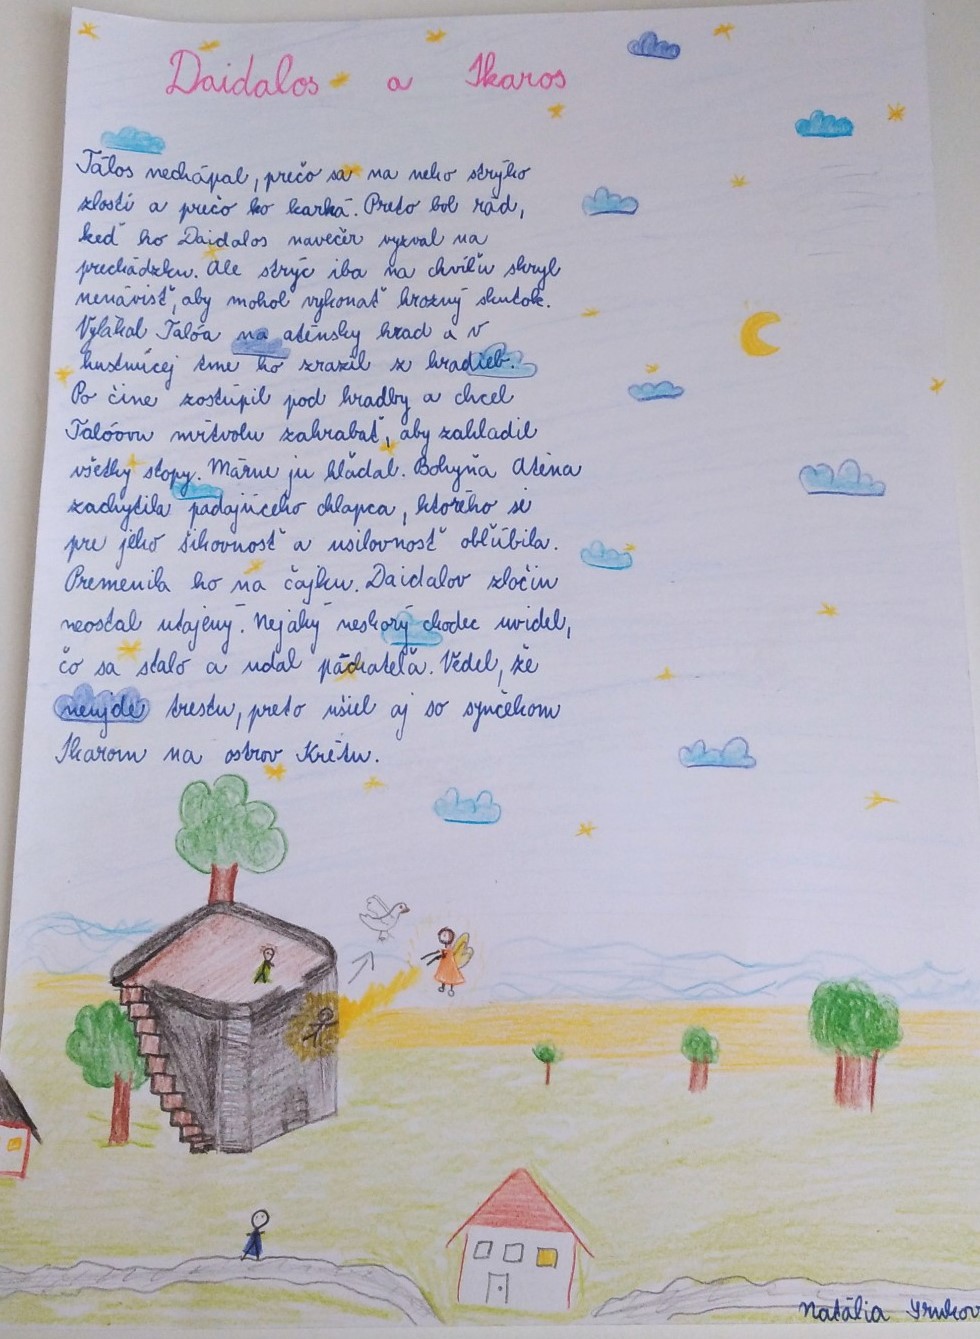 Daidalos a Ikaros
Tálos nechápal, prečo sa na neho strýko
zlostí a prečo ho karhá. Preto bol rád,
keď ho Daidalos navečer vyzval na
prechádzku. Ale strýc iba na chvíľu skryl
nenávisť, aby mohol vykonať hrozný skutok.
Vylákal Talóa na aténsky hrad a v
hustnúcej tme ho zrazil z hradieb.
Po čine zostúpil pod hradby a chcel
Talóovu mŕtvolu zahrabať, aby zahladil
všetky stopy. Márne ju hľadal. Bohyňa Aténa
zachytila padajúceho chlapca, ktorého si
pre jeho šikovnosť a usilovnosť obľúbila.
Premenila ho na čajku. Daidalov zločin
neostal utajený. Nejaký neskorý chodec uvidel,
čo sa stalo a udal páchateľa. Vedel, že
neujde trestu, preto ušiel aj so synčekom
Ikarom na ostrov Krétu.
Natália